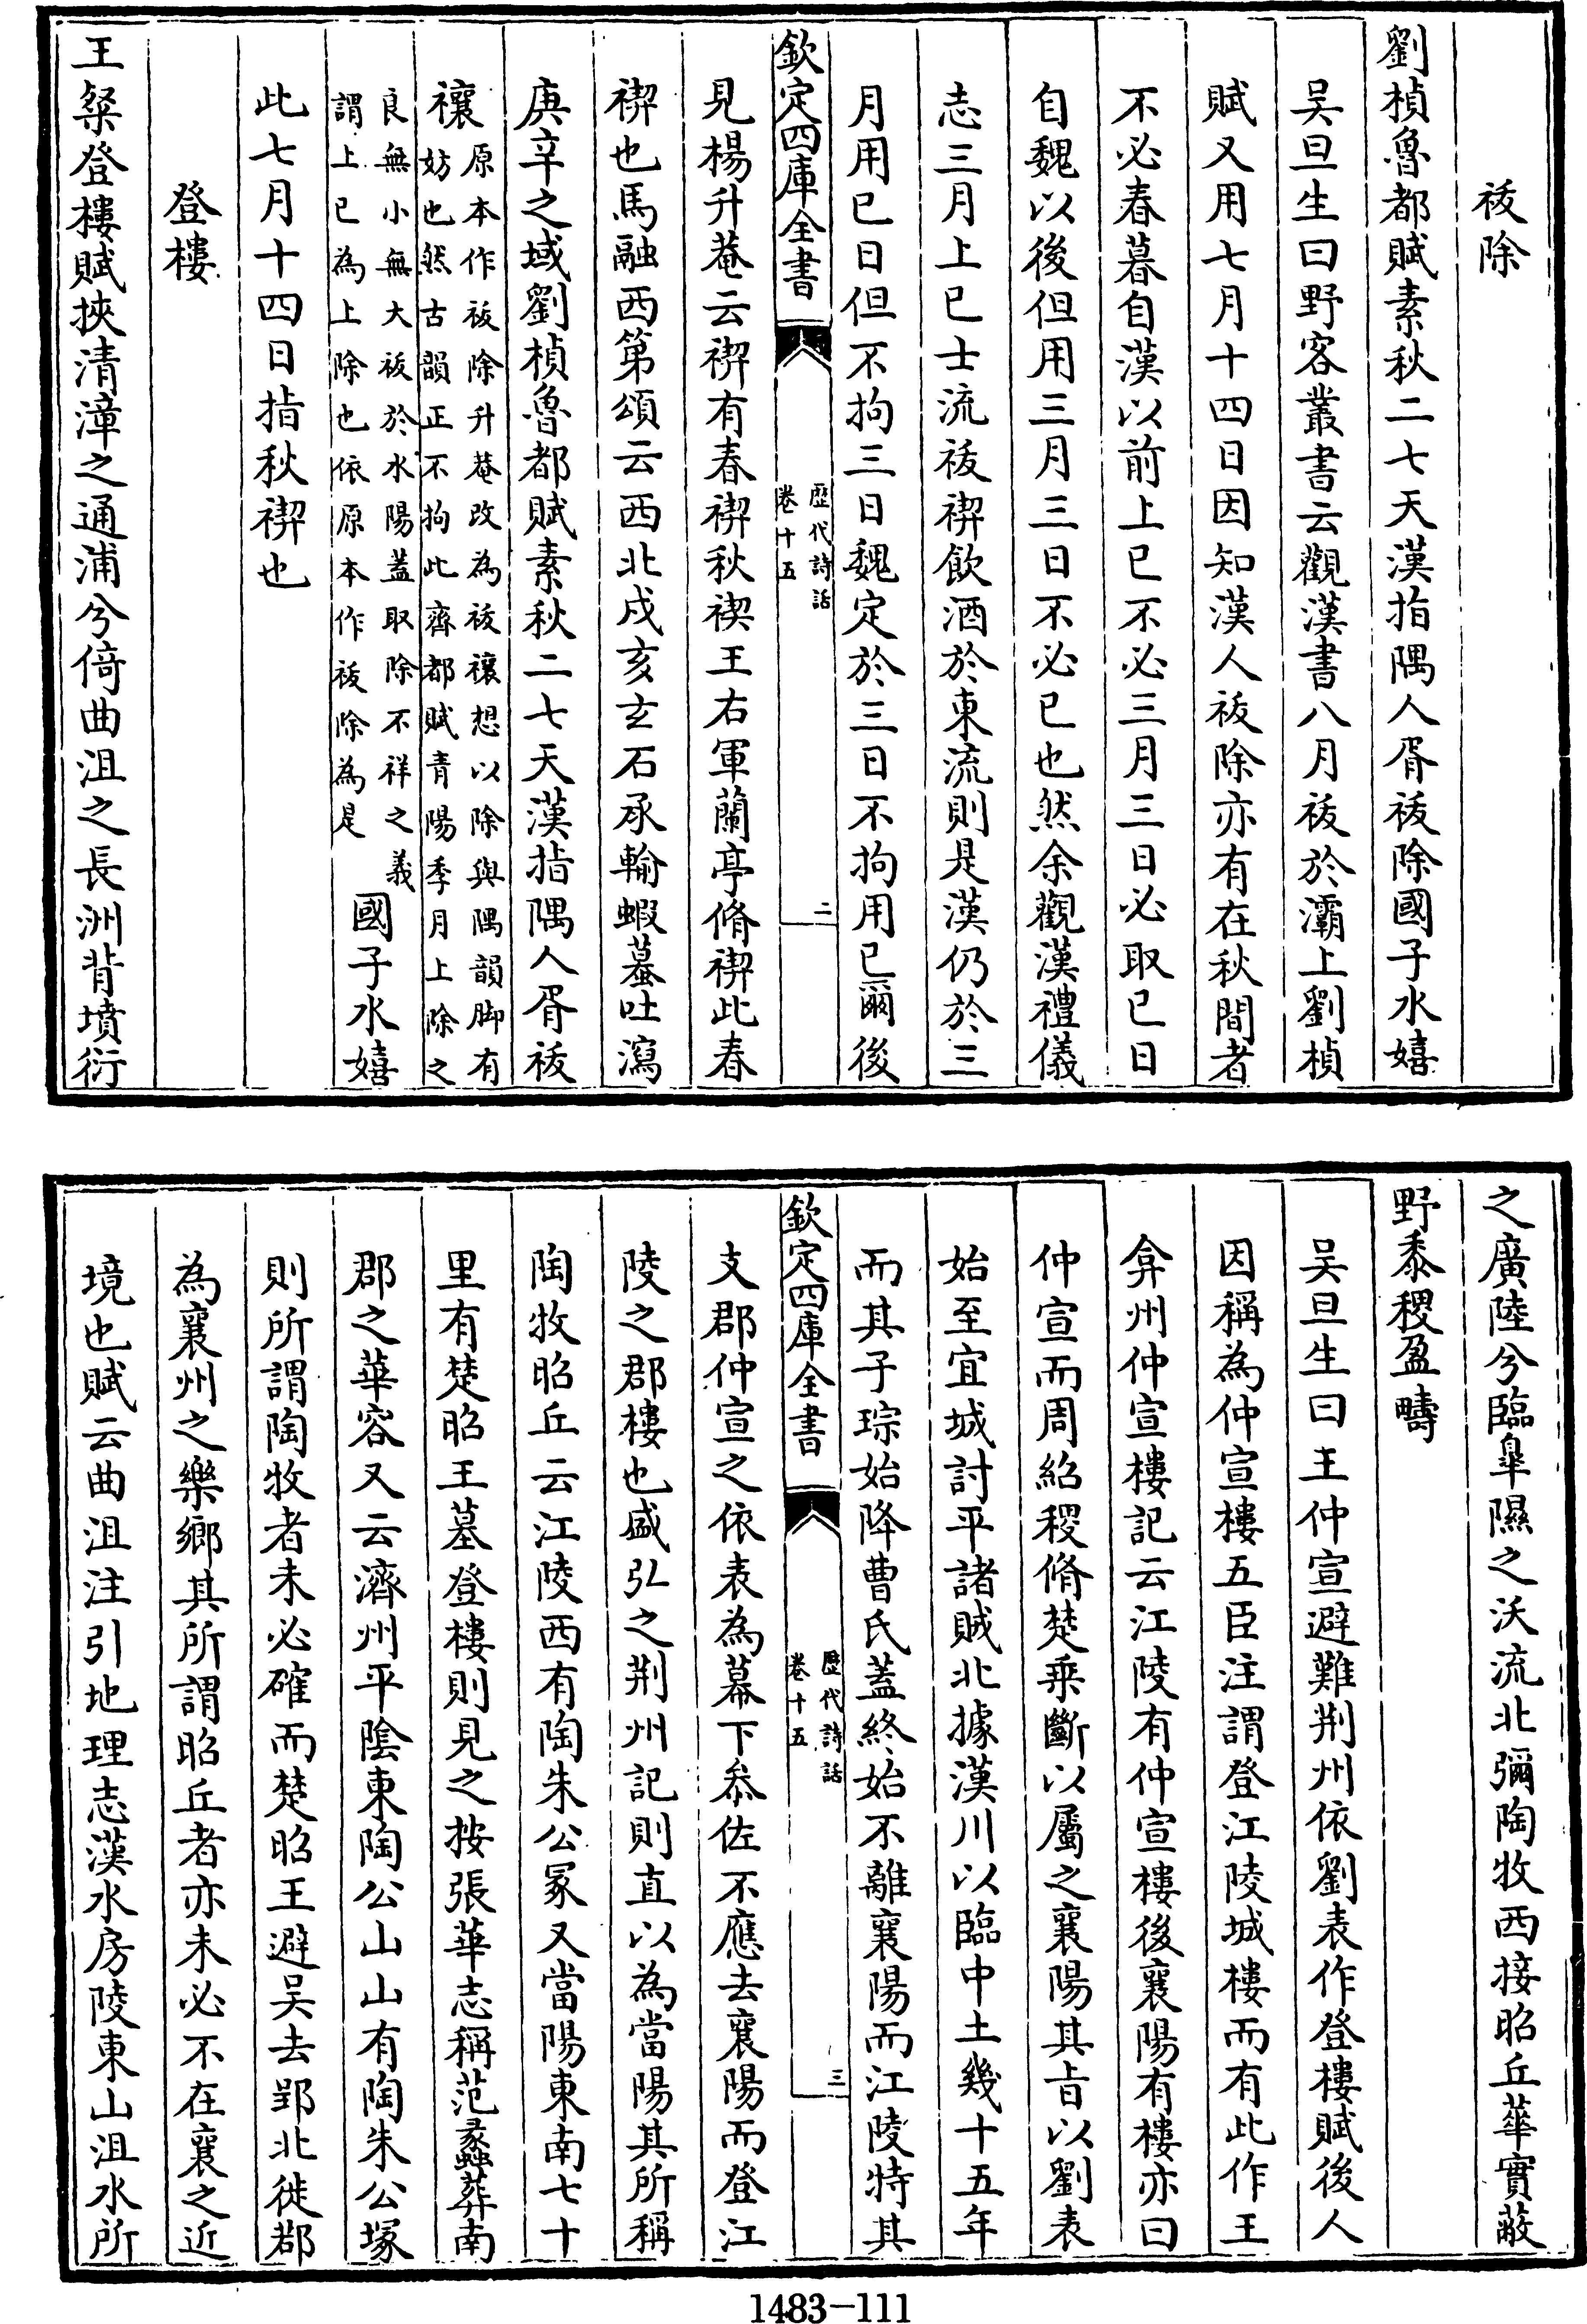 祓除
劉楨魯都賦素秋二七天漢指隅人胥祓除國子水嬉
吳旦生曰野客叢書云觀漢書八月祓於灞上劉楨
賦又用七月十四日因知漢人祓除亦有在秋間者
不必春暮自漢以前上巳不必三月三日必取巳日
自魏以後但用三月三日不必巳也然余觀漢禮儀
志三月上巳士流祓禊飲酒於東流則是漢仍於三
月用巳日但不拘三日魏定於三日不拘用巳爾後
欽定四庫全書
歷代詩話
卷十五
二
見楊升菴云禊有春禊秋禊王右軍蘭亭脩禊此春
禊也馬融西第頌云西北戌亥玄石承輸蝦蟇吐瀉
庚辛之域劉楨魯都賦素秋二七天漢指隅人胥祓
禳
原本作祓除升菴改為祓禳想以除與隅韻脚有
妨也然古韻正不拘此齊都賦青陽季月上除之
良無小無大祓於水陽蓋取除不祥之義
謂上巳為上除也依原本作祓除為是
國子水嬉
此七月十四日指秋禊也
登樓
王粲登樓賦挾清漳之通浦兮倚曲沮之長洲背墳衍
之廣陸兮臨臯隰之沃流北彌陶牧西接昭丘華實蔽
野黍稷盈疇
吳旦生曰王仲宣避難荆州依劉表作登樓賦後人
因稱為仲宣樓五臣注謂登江陵城樓而有此作王
弇州仲宣樓記云江陵有仲宣樓後襄陽有樓亦曰
仲宣而周紹稷脩楚乘斷以屬之襄陽其旨以劉表
始至宜城討平諸賊北據漢川以臨中土幾十五年
而其子琮始降曹氏蓋終始不離襄陽而江陵特其
欽定四庫全書
歷代詩話
卷十五
三
支郡仲宣之依表為幕下叅佐不應去襄陽而登江
陵之郡樓也盛弘之荆州記則直以為當陽其所稱
陶牧昭丘云江陵西有陶朱公冢又當陽東南七十
里有楚昭王墓登樓則見之按張華志稱范蠡葬南
郡之華容又云濟州平陰東陶公山山有陶朱公塚
則所謂陶牧者未必確而楚昭王避吳去郢北徙都
為襄州之樂鄉其所謂昭丘者亦未必不在襄之近
境也賦云曲沮注引地理志漢水房陵東山沮水所
1483-111